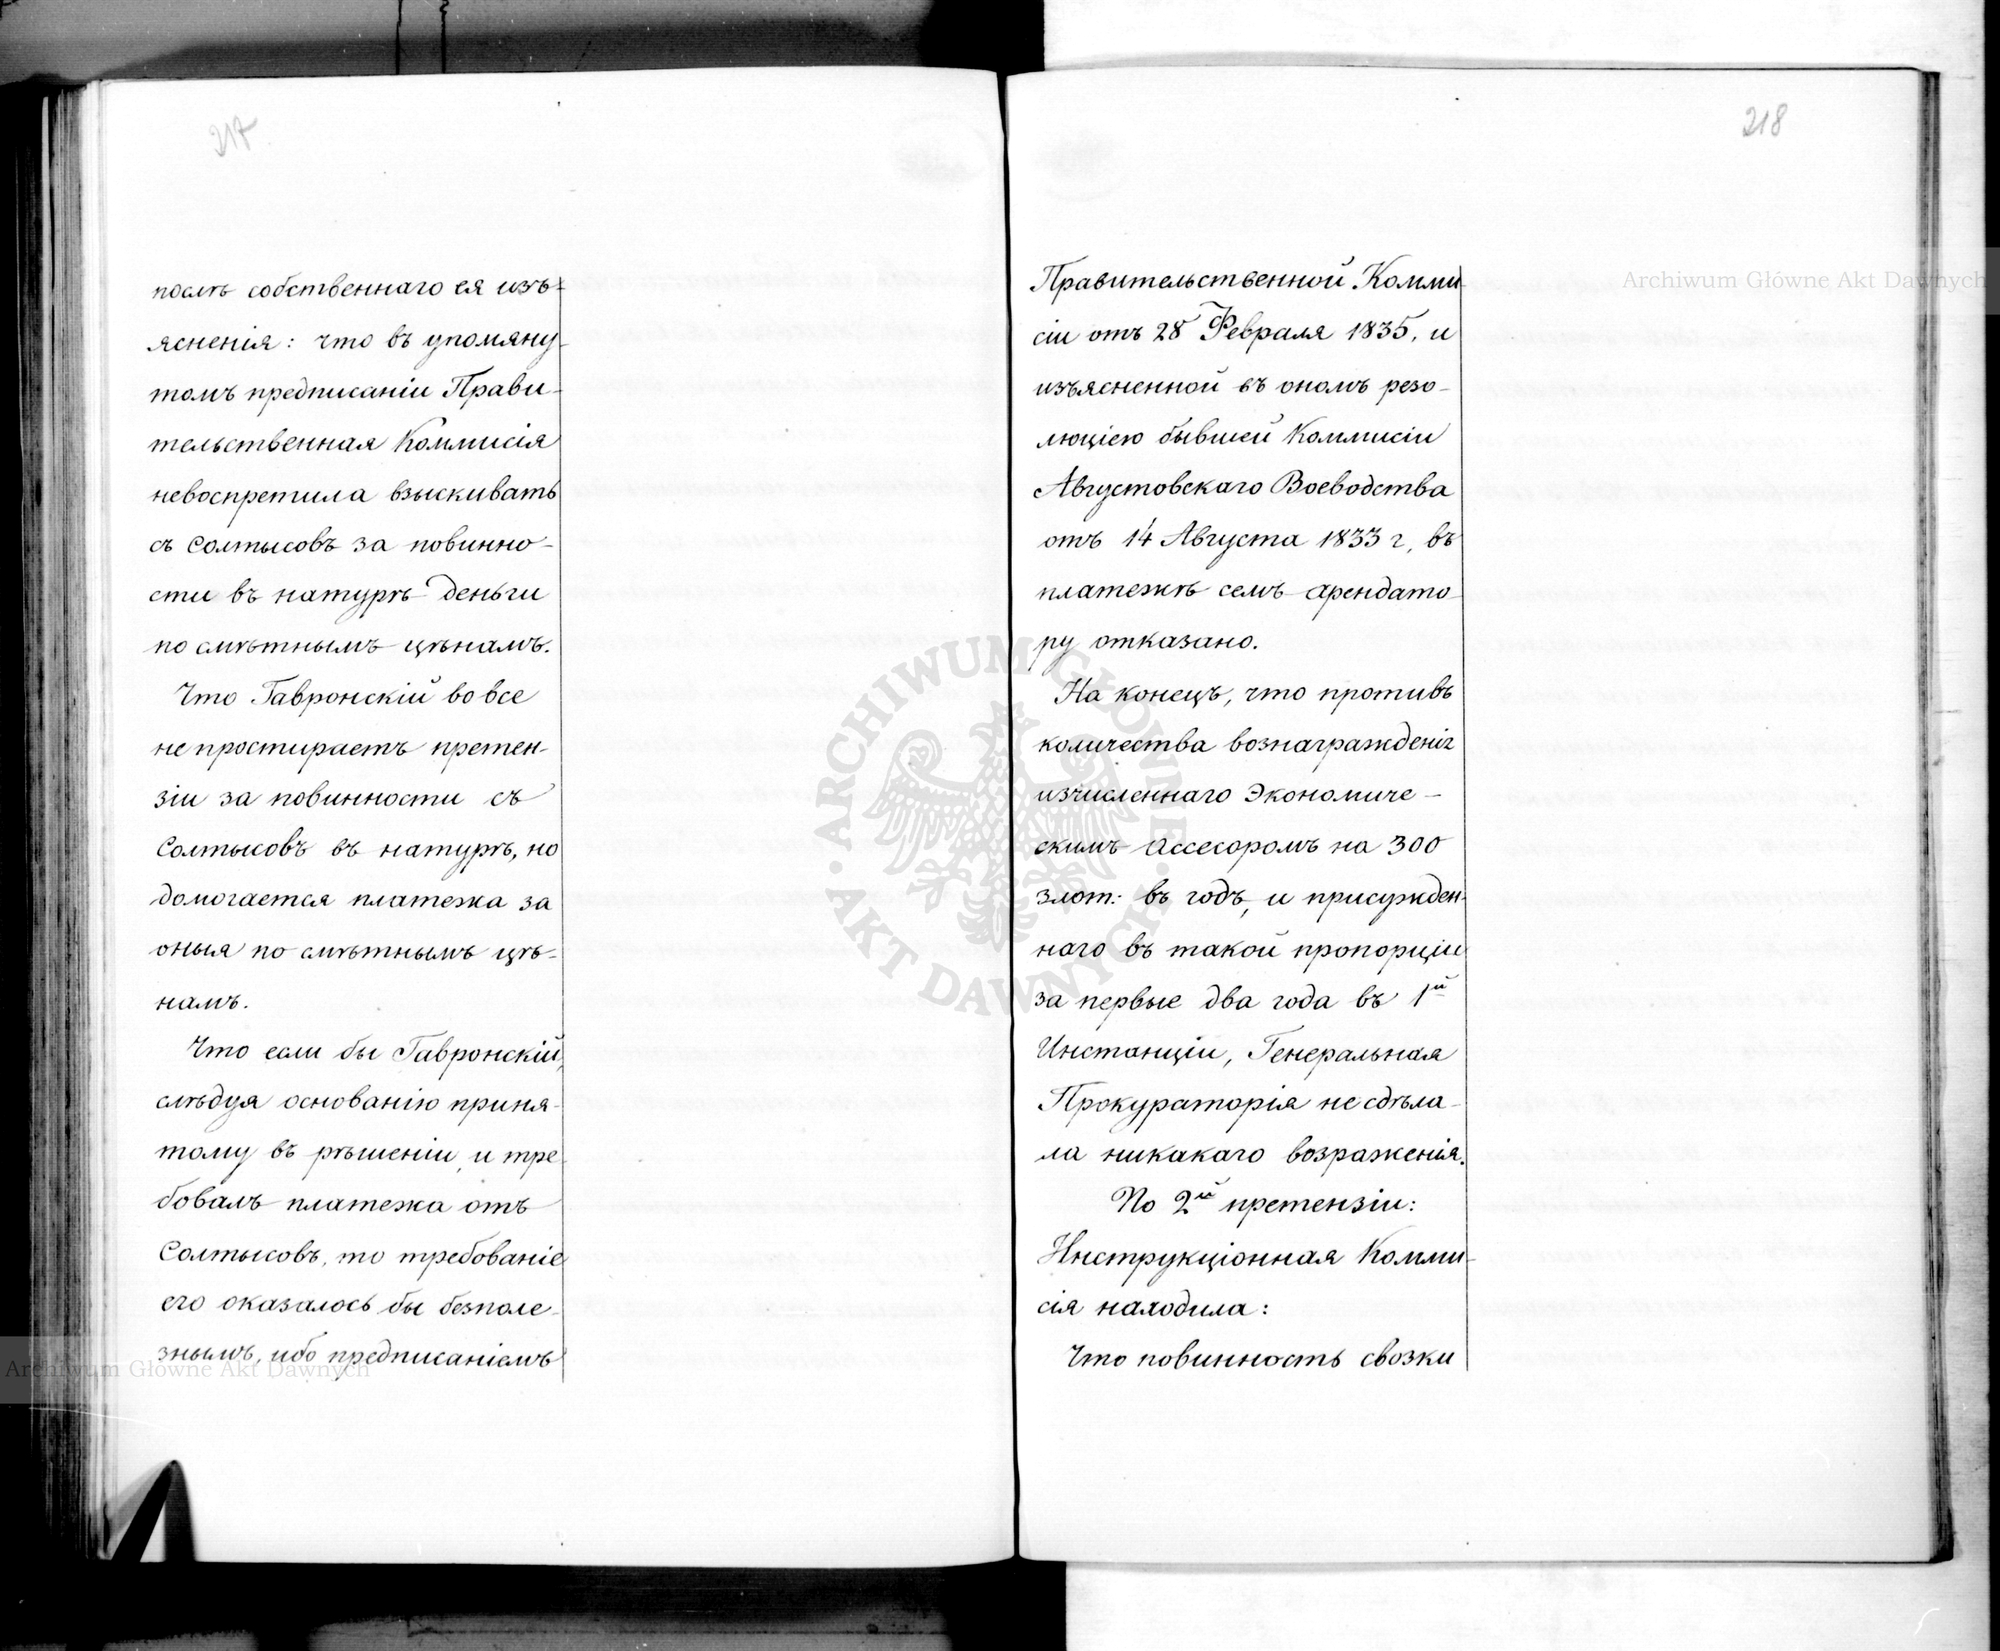 217
послѣ собственнаго ея изъ-
ясненія: что въ упомяну-
томъ предписаніи Прави-
тельственная Коммисія
невоспретила взыскивать
съ Солтысовъ за повинно-
сти въ натурѣ деньги
по смѣтнымъ цѣнамъ.
Что Гавронскій вовсе
не простираетъ претен-
зіи за повинности съ
Солтысовъ въ натурѣ, но
домогается платежа за
оныя по смѣтнымъ цѣ-
намъ.
Что если бы Гавронскій,
слѣдуя основанію приня-
тому въ рѣшеніи, и тре-
бовалъ платежа отъ
Солтысовъ, то требованіе
его оказалось бы безполе-
знымъ, ибо предписаніемъ
218
Правительственной Комми-
сіи отъ 28 Февраля 1835, и
изъясненной въ ономъ резо-
люціею бывшей Коммисіи
Августовскаго Воеводства
отъ 14 Августа 1833 г, въ
платежѣ семъ арендато-
ру отказано.
На конецъ, что противъ
количества вознагражденія
изчисленнаго Экономиче-
скимъ Ассесоромъ на 300
злот: въ годъ, и присужден-
наго въ такой пропорціи
за первые два года въ 1й
Инстанціи, Генеральная
Прокураторія не сдѣла-
ла никакаго возраженія.
По 2й претензіи:
Инструкціонная Комми-
сія находила:
Что повинность свозки
Archiwum Główne Akt Dawnych
Archiwum Główne Akt Dawnych
ARCHIWUM GŁÓWNE AKT DAWNYCH